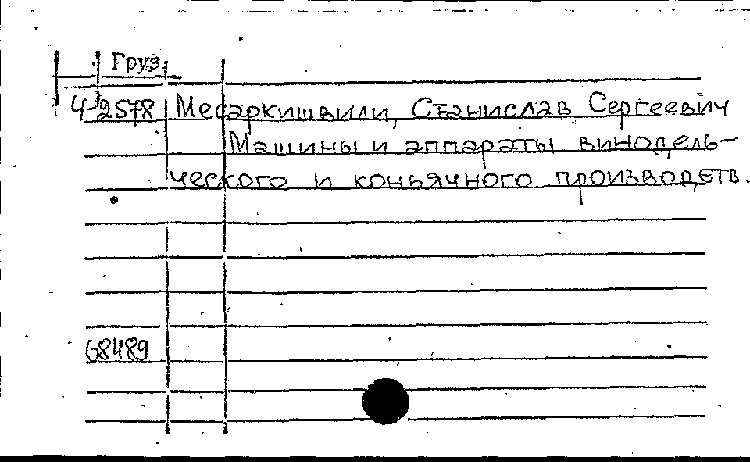 Груз.
Ч 2578 Месаркишвили, Станислав Сергеевич
Машины и аппараты винодель-
ческого и коньячного производств.
68489